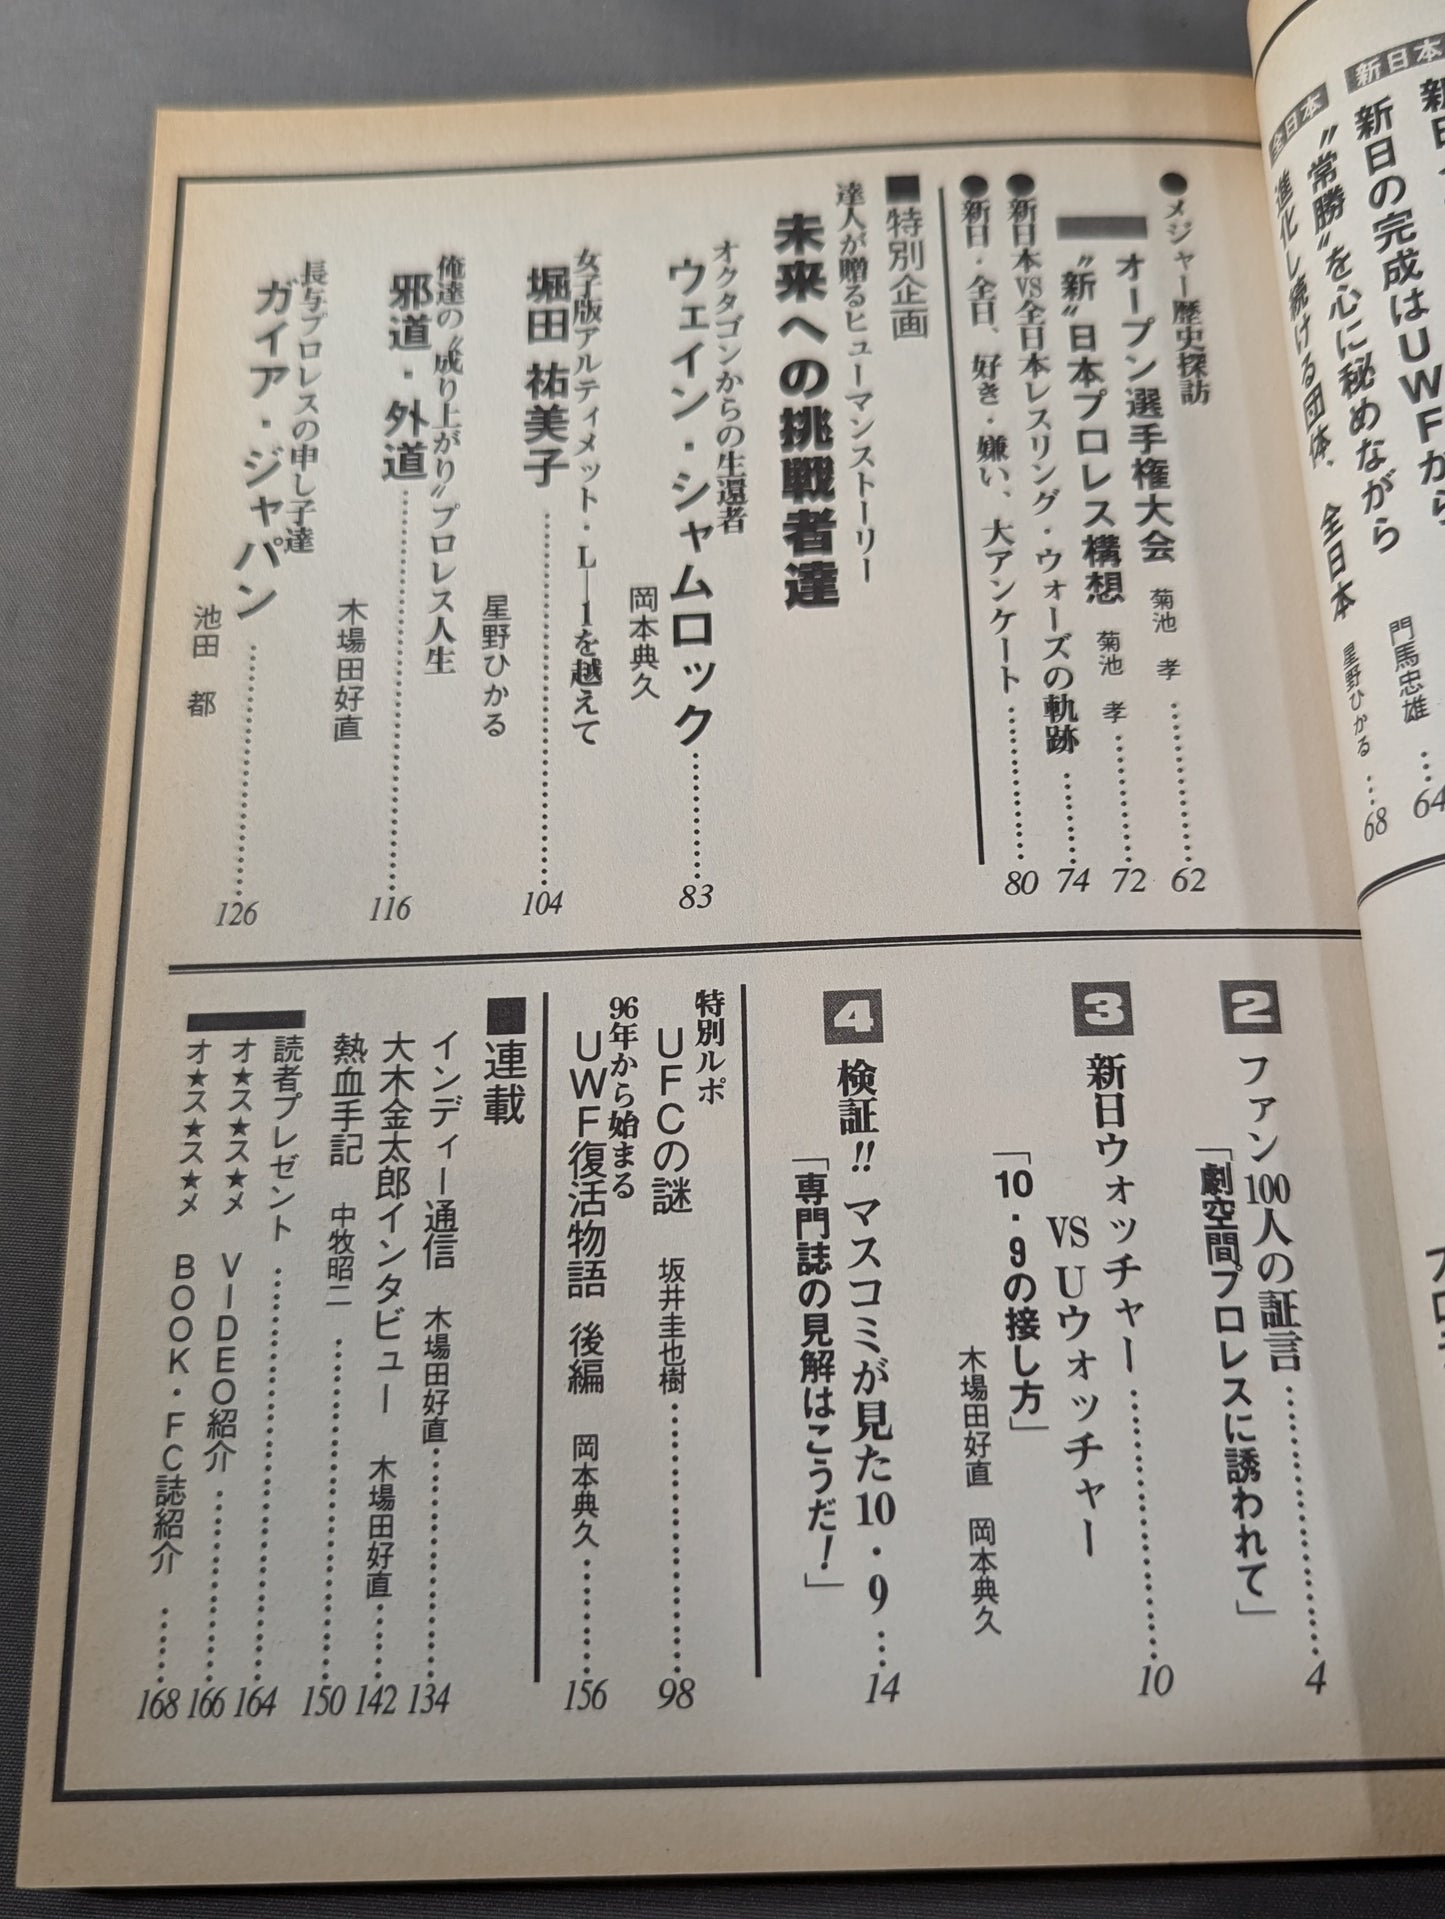 新日本
新日の完成はUWFから
門馬忠雄…64
全日本
"常勝"を心に秘めながら
進化し続ける団体、全日本
星野ひかる…68
●メジャー歴史探訪
オープン選手権大会 菊池 孝…………62
"新"日本プロレス構想 菊池 孝…………72
●新日本VS全日本レスリング・ウォーズの軌跡…………74
●新日・全日、好き・嫌い、大アンケート…………80
■特別企画
達人が贈るヒューマンストーリー
未来への挑戦者達
オクタゴンからの生還者
ウェイン・シャムロック…………83
岡本典久
女子版アルティメット・L―1を越えて
堀田 祐美子…………104
星野ひかる
俺達の"成り上がり"プロレス人生
邪道・外道…………116
木場田好直
長与プロレスの申し子達
ガイア・ジャパン…………126
池田 都
2 ファン100人の証言…………4
「劇空間プロレスに誘われて」
3 新日ウォッチャー…………10
VS Uウォッチャー
「10・9の接し方」
木場田好直 岡本典久
4 検証!! マスコミが見た10・9…14
「専門誌の見解はこうだ!」
特別ルポ
UFCの謎 坂井圭也樹…………98
96年から始まる
UWF復活物語 後編 岡本典久…………156
■連載
インディー通信 木場田好直…………134
大木金太郎インタビュー 木場田好直…………142
熱血手記 中牧昭二…………150
読者プレゼント…………164
オ★ス★ス★メ VIDEO紹介…………166
オ★ス★ス★メ BOOK・FC誌紹介…………168